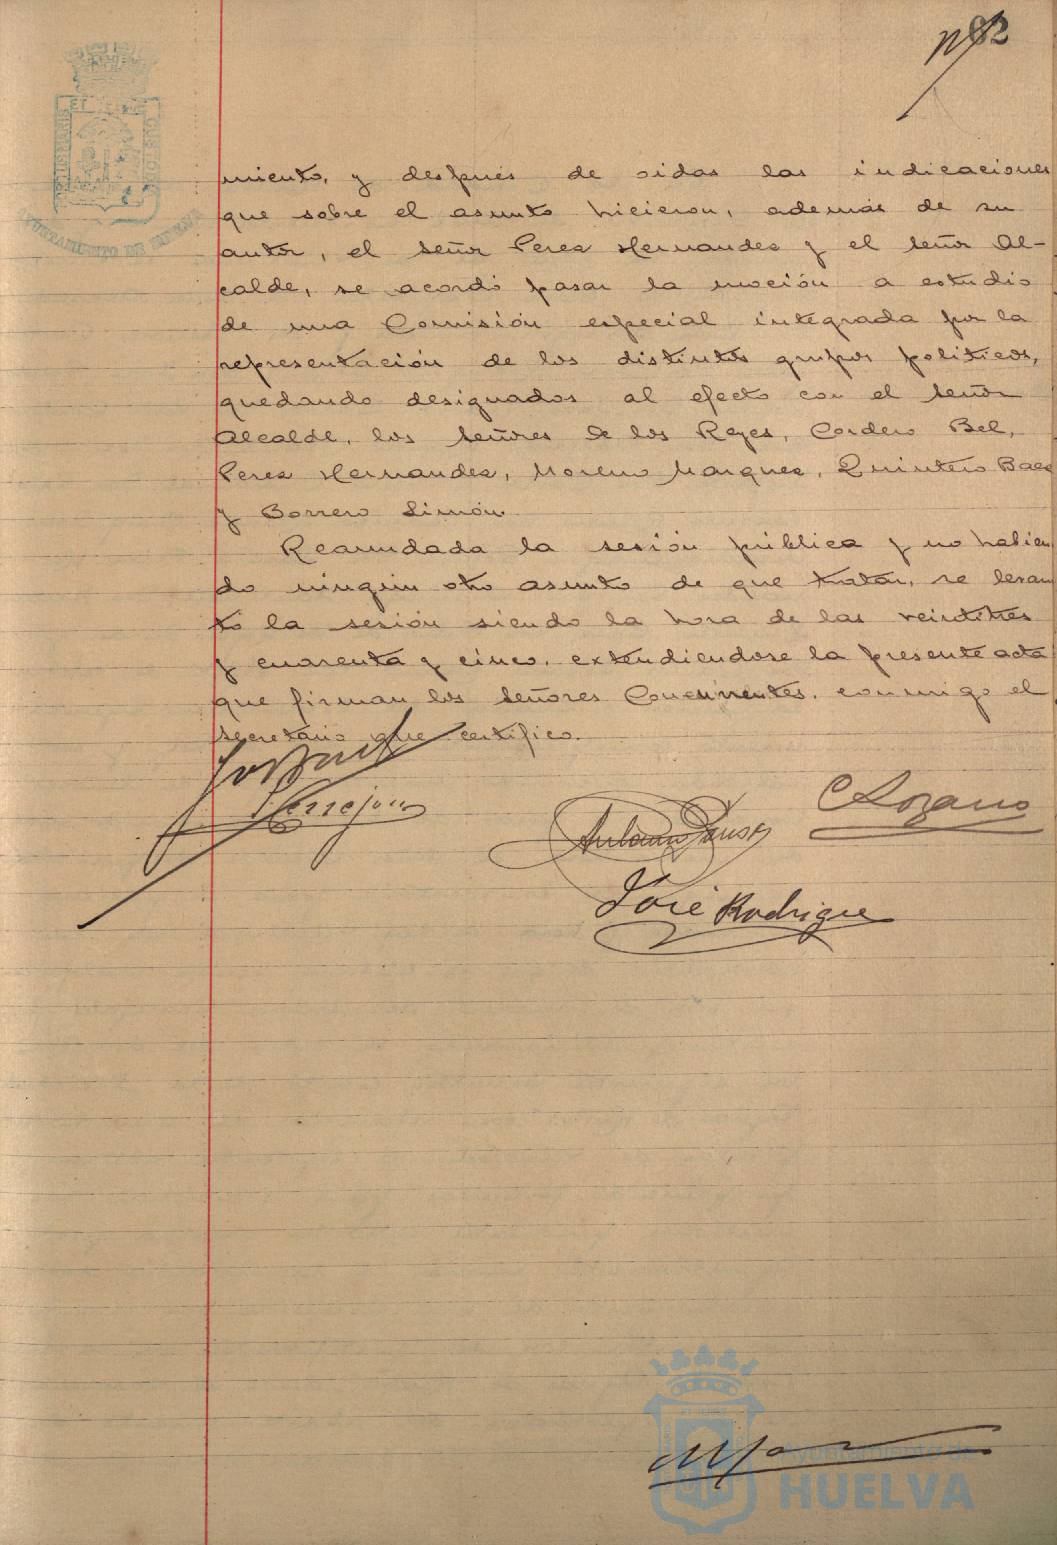 82
AYUNTAMIENTO DE HUELVA
miento, y después de oidas las indicaciones
que sobre el asunto hicieron, además de su
autor, el señor Perez Hernandez y el señor Al-
calde, se acordó pasar la moción a estudio
de una Comisión especial integrada por la
representación de los distintos grupos politicos,
quedando designados al efecto con el señor
Alcalde, los señores de los Reyes, Cordero Bel,
Perez Hernandez, Moreno Marquez, Quintero Baez
y Borrero Limón.
Reanudada la sesión pública y no habien
do ningún otro asunto de que tratar, se levan
tó la sesión siendo la hora de las veintitres
y cuarenta y cinco, extendiendose la presente acta
que firman los señores Concurrentes, conmigo el
secretario que certifico.
Terrejon
C Lozano
Antonio Pousa
José Rodrigue
Ayuntamiento de
HUELVA